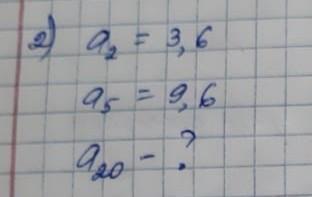 2) a₂ = 3,6
a₅ = 9,6
a₂₀ - ?